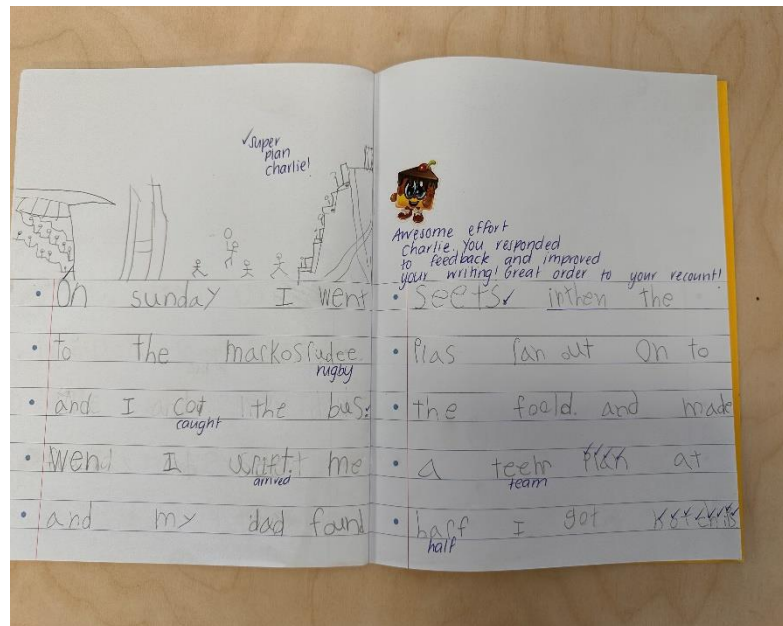 ✓super
plan
charlie!
On sunday I went
to the markos rudee.
rugby
and I cot the bus.
caught
wen I me
arrived
and my dad found
Awesome effort
Charlie. You responded
to feedback and improved
your writing! Great order to your recount!
seets✓ inthen the
Plas ran out On to
the foeld. and made
a teem plan at
team
harf I got
half